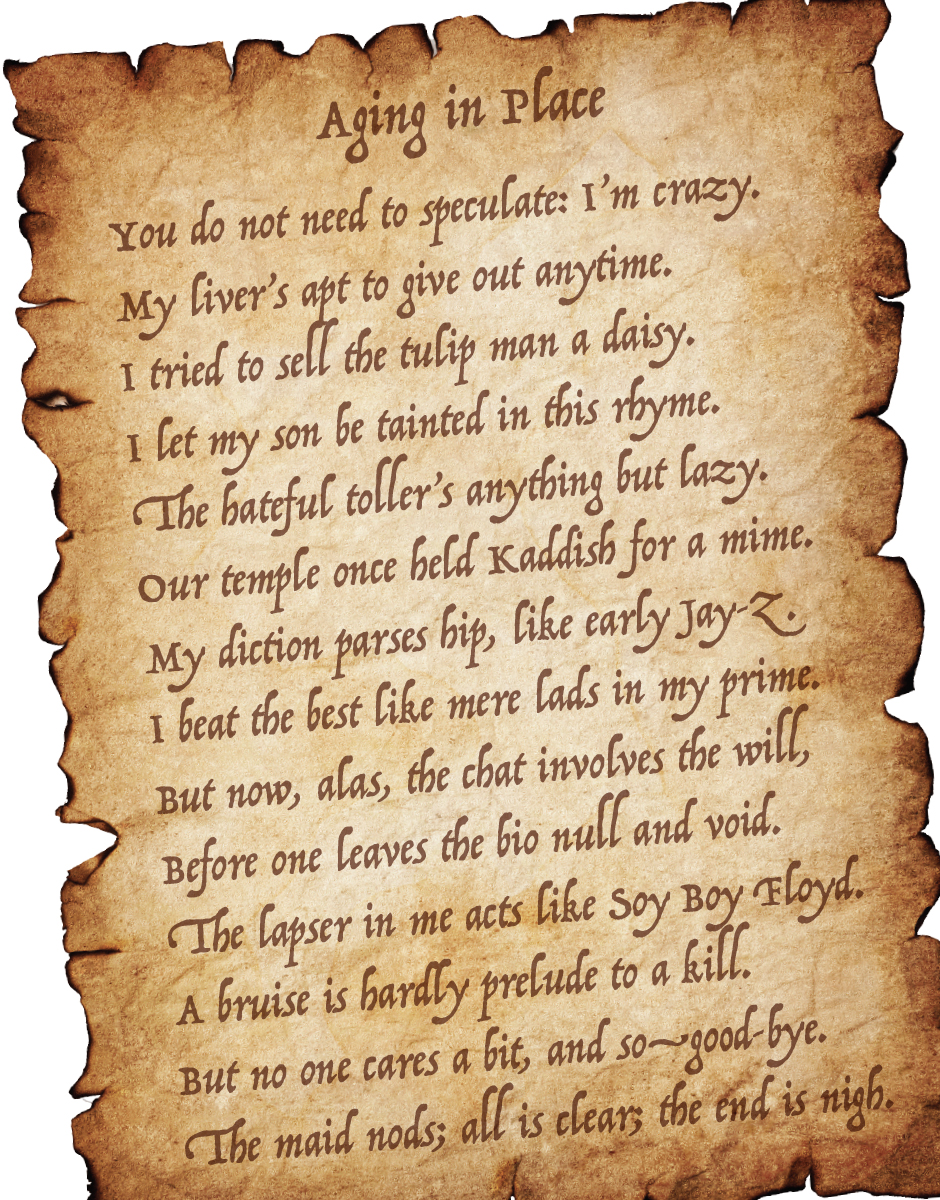 Aging in Place
You do not need to speculate: I'm crazy.
My liver's apt to give out anytime.
I tried to sell the tulip man a daisy.
I let my son be tainted in this rhyme.
The hateful toller's anything but lazy.
Our temple once held Kaddish for a mime.
My diction parses hip, like early Jay-Z.
I beat the best like mere lads in my prime.
But now, alas, the chat involves the will,
Before one leaves the bio null and void.
The lapser in me acts like Soy Boy Floyd.
A bruise is hardly prelude to a kill.
But no one cares a bit, and so—good-bye.
The maid nods; all is clear; the end is nigh.